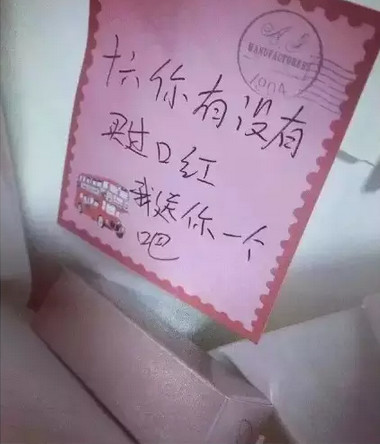 MANUFACTURERS
你有没有
买过口红
我送你一个
吧